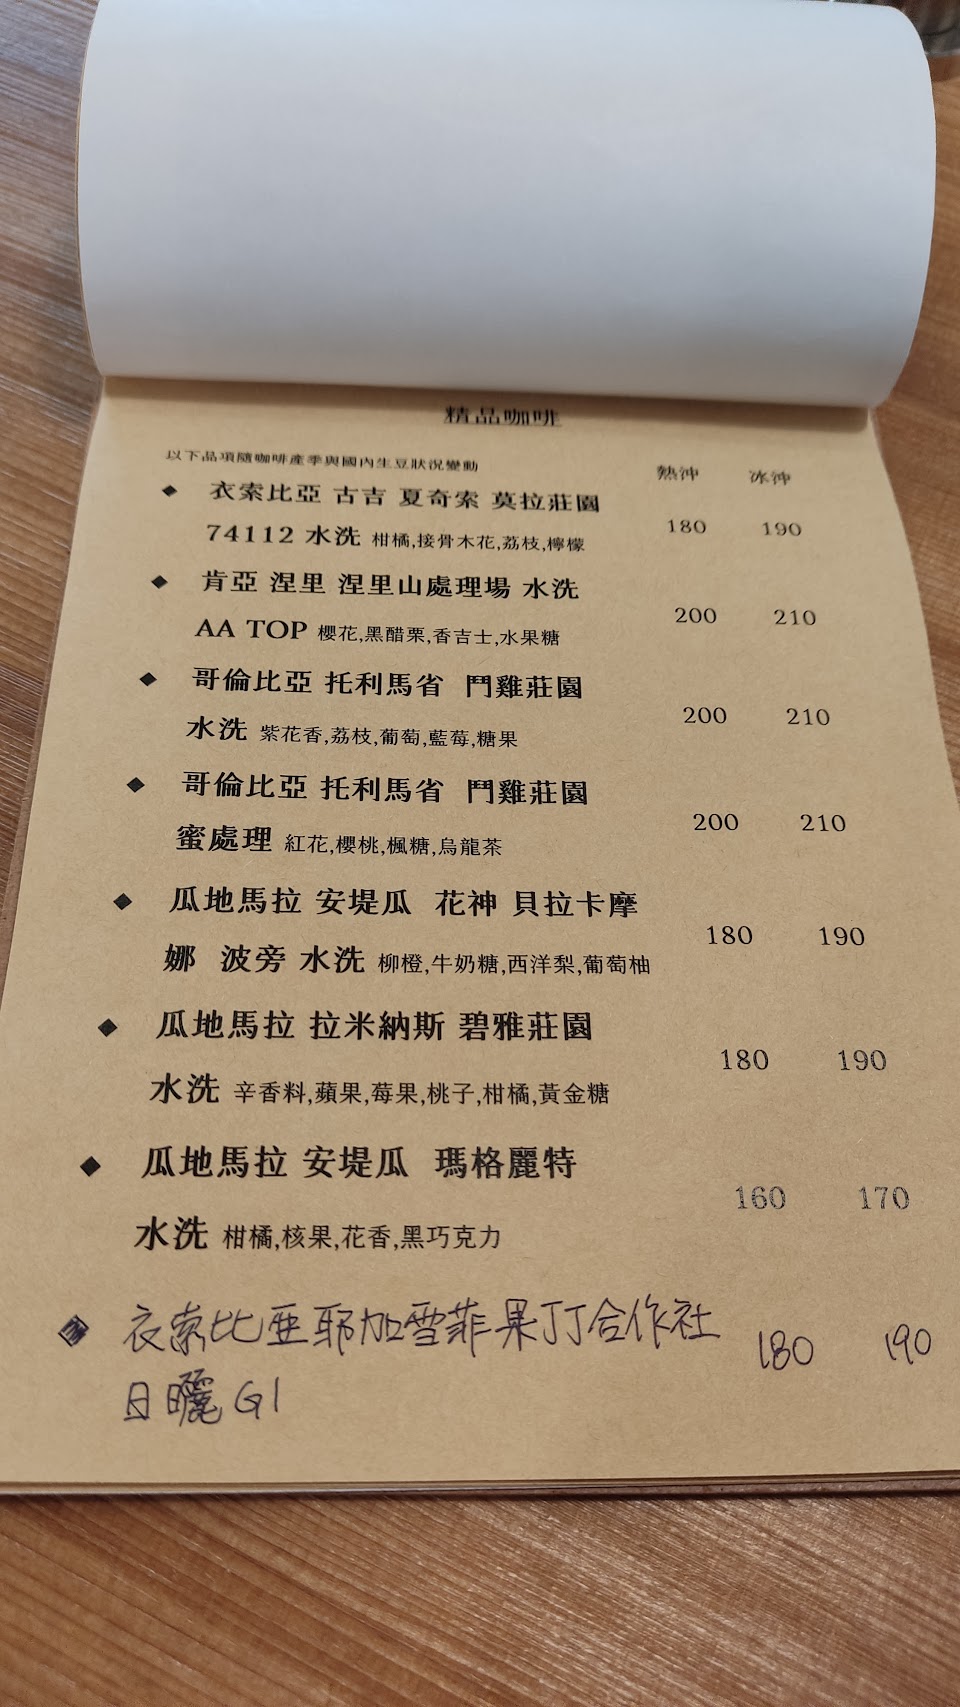 精品咖啡
以下品項隨咖啡產季與國內生豆狀況變動 熱沖 冰沖
◆ 衣索比亞 古吉 夏奇索 莫拉莊園
74112 水洗 柑橘,接骨木花,荔枝,檸檬 180 190
◆ 肯亞 涅里 涅里山處理場 水洗
AA TOP 櫻花,黑醋栗,香吉士,水果糖 200 210
◆ 哥倫比亞 托利馬省 鬥雞莊園
水洗 紫花香,荔枝,葡萄,藍莓,糖果 200 210
◆ 哥倫比亞 托利馬省 鬥雞莊園
蜜處理 紅花,櫻桃,楓糖,烏龍茶 200 210
◆ 瓜地馬拉 安堤瓜 花神 貝拉卡摩
娜 波旁 水洗 柳橙,牛奶糖,西洋梨,葡萄柚 180 190
◆ 瓜地馬拉 拉米納斯 碧雅莊園
水洗 辛香料,蘋果,莓果,桃子,柑橘,黃金糖 180 190
◆ 瓜地馬拉 安堤瓜 瑪格麗特
水洗 柑橘,核果,花香,黑巧克力 160 170
◆ 衣索比亞耶加雪菲果丁丁合作社 180 190
日曬 G1